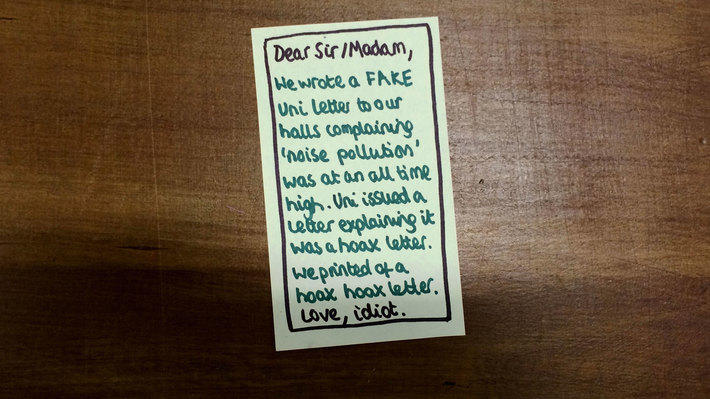 Dear Sir/Madam,
We wrote a FAKE
Uni letter to our
halls complaining
'noise pollution'
was at an all time
high. Uni issued a
letter explaining it
was a hoax letter.
We printed of a
hoax hoax letter.
Love, idiot.